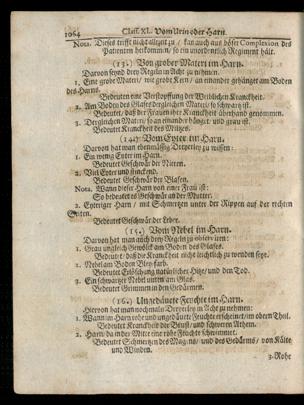 1064 Class. XI. Vom Urin oder Harn.
Nota. Dieses trifft nicht allzeit zu / kan auch aus böser Complexion des
Patienten herkommen / so ein unordentlich Regiment hält.
(13.) Von grober Materi im Harn.
Darvon seynd drey Regeln in Acht zu nehmen.
1. Eine grobe Materi / wie grobe Kern / an einander gehänget am Boden
des Harns.
Bedeuten eine Verstopffung der Weiblichen Kranckheit.
2. Am Boden des Glases dergleichen Materi / so schwartz ist.
Bedeutet / daß der Frauen ihre Kranckheit überhand genommen.
3. Dergleichen Materi / so an einander hänget und grau ist.
Bedeutet Kranckheit des Miltzes.
(14.) Vom Eyter im Harn.
Darvon hat man ebenmässig Dreyerley zu wissen:
1. Ein wenig Eyter im Harn.
Bedeutet Geschwär der Nieren.
2. Viel Eyter und stinckend.
Bedeutet Geschwär der Blasen.
Nota. Wann dieser Harn von einer Frau ist:
So bedeutet es Geschwär an der Mutter.
2. Eyteriger Harn / mit Schmertzen unter der Rippen auf der rechten
Seiten.
Bedeutet Geschwär der Leber.
(15.) Vom Nebel im Harn.
Darvon hat man auch drey Regeln zu observiren:
1. Grau ungleich Gewölck am Boden des Glases.
Bedeutet / daß die Kranckheit nicht leichtlich zu wenden seye.
2. Nebel am Boden Bley-farb.
Bedeutet Erlöschung natürlicher Hitze / und den Tod.
3. Ein schwartzer Nebel unten am Glas.
Bedeutet Grimmen in den Gedärmen.
(16.) Ungedäute Feuchte im Harn.
Hiervon hat man nochmaln Dreyerley in Acht zu nehmen:
1. Wann im Harn rohe und ungedäute Feuchte erscheinet / im obern Theil.
Bedeutet Kranckheit der Brust / und schweren Athem.
2. Harn / da in der Mitte eine rohe Feuchte schwimmet.
Bedeutet Schmertzen des Magens / und des Gedärms / von Kälte
und Winden.
3. Rohe